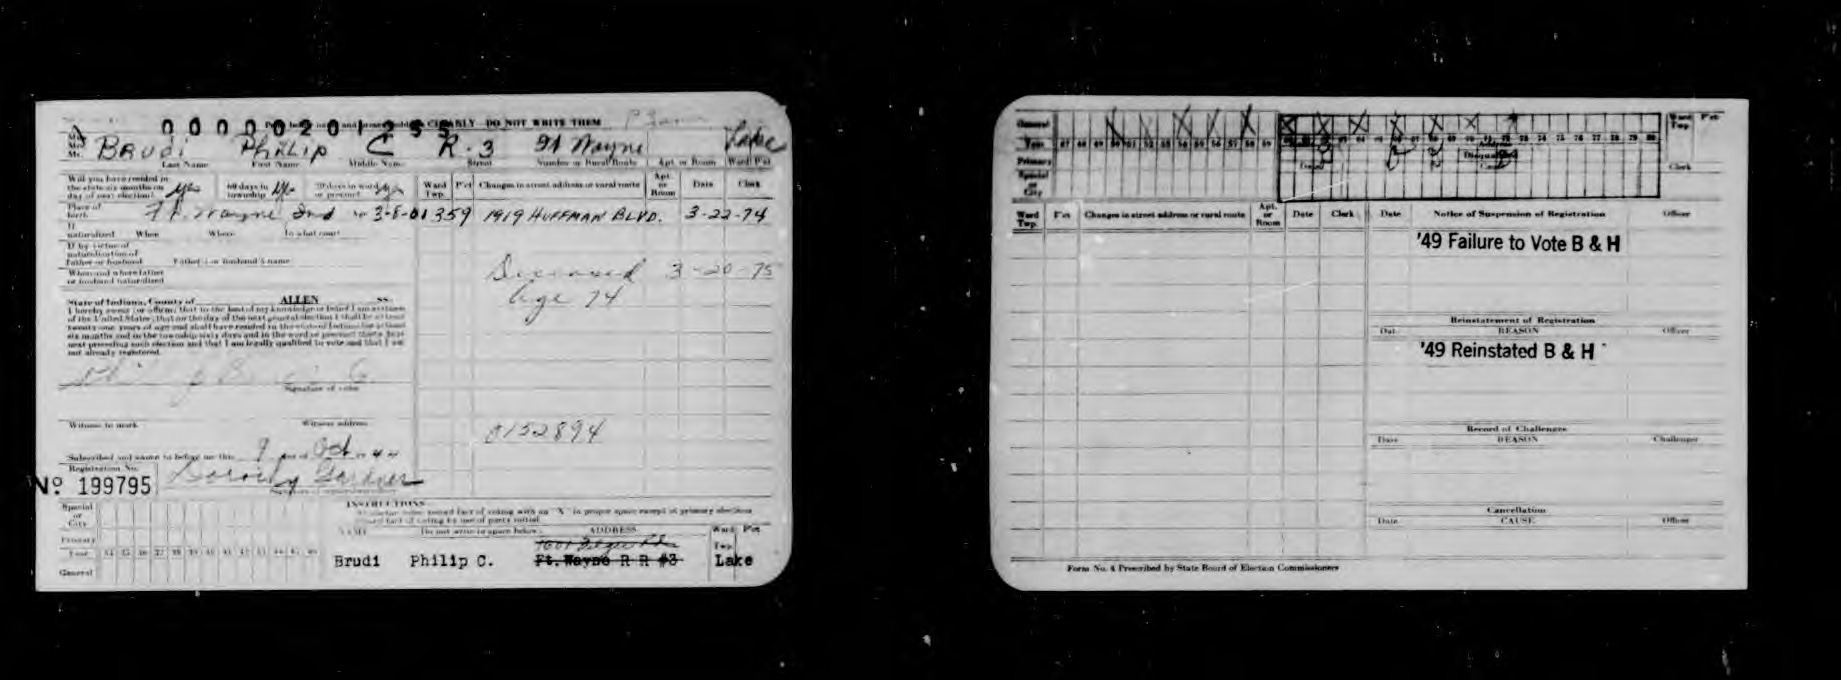 0000201255
CLEARLY DO NOT WRITE THEM
Brudi Philip C R-3 Ft Wayne Lake
Last Name First Name Middle Name Street Number or Rural Route Apt. or Room Ward Pct
Will you have resided in
the state six months on yes 60 days in yes yes Ward Pct Changes in street address or rural route Apt. or Room Date Clerk
day of next election? township or precinct Twp.
Place of
birth Ft. Wayne Ind 3-8-01 359 1919 HUFFMAN BLVD. 3-22-74
If
naturalized When Where In what court
If by virtue of
naturalization of
father or husband Father's or husband's name
When and where father
or husband naturalized
Deceased 3-20-75
Age 74
State of Indiana, County of ALLEN ss.
I hereby swear (or affirm) that to the best of my knowledge or belief I am a citizen
of the United States; that on the day of the next general election I shall be at least
twenty-one years of age and shall have resided in the state of Indiana for at least
six months and in the township sixty days and in the ward or precinct thirty days
next preceding such election and that I am legally qualified to vote and that I am
not already registered.
Signature of voter
Witness to mark Witness address
0152894
Subscribed and sworn to before me this 9 day of Oct 44
Registration No.
Nº 199795 Dorothy Gardner
INSTRUCTIONS
Special
or
City
Primary
Year 34 35 36 37 38 39 40 41 42 43 44 45 46
General
NAME Do not write in space below. ADDRESS Ward Pct
Twp.
Brudi Philip C. Ft. Wayne R R #3 Lake
General
Year 47 48 49 50 51 52 53 54 55 56 57 58 59
Primary
Special
or
City
Ward
Twp. Pct
Clerk
Ward
Twp. Pct Changes in street address or rural route Apt. or Room Date Clerk Date Notice of Suspension of Registration Officer
'49 Failure to Vote B & H
Reinstatement of Registration
Date REASON Officer
'49 Reinstated B & H
Record of Challenges
Date REASON Challenger
Cancellation
Date CAUSE Officer
Form No. 4 Prescribed by State Board of Election Commissioners